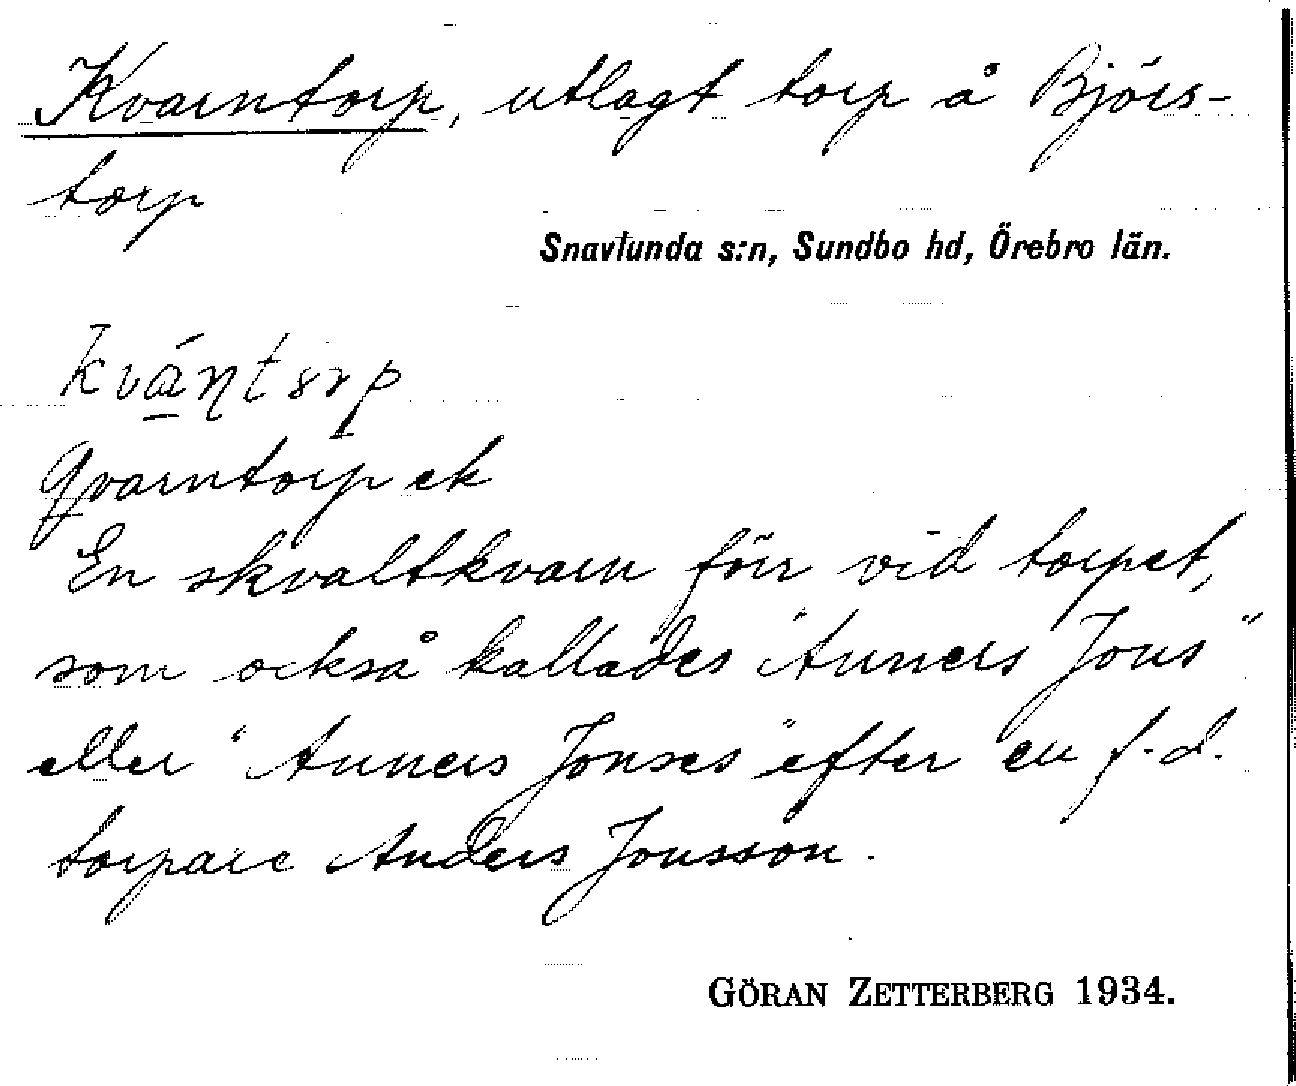 Kvarntorp, utlagt torp å Björs-
torp
Snavlunda s:n, Sundbo hd, Örebro län.
Qvarntorp ek
En skvaltkvarn förr vid torpet,
som också kallades "Anners Jons"
eller "Anners Jonses" efter en f.d.
torpare Anders Jonsson.
GÖRAN ZETTERBERG 1934.